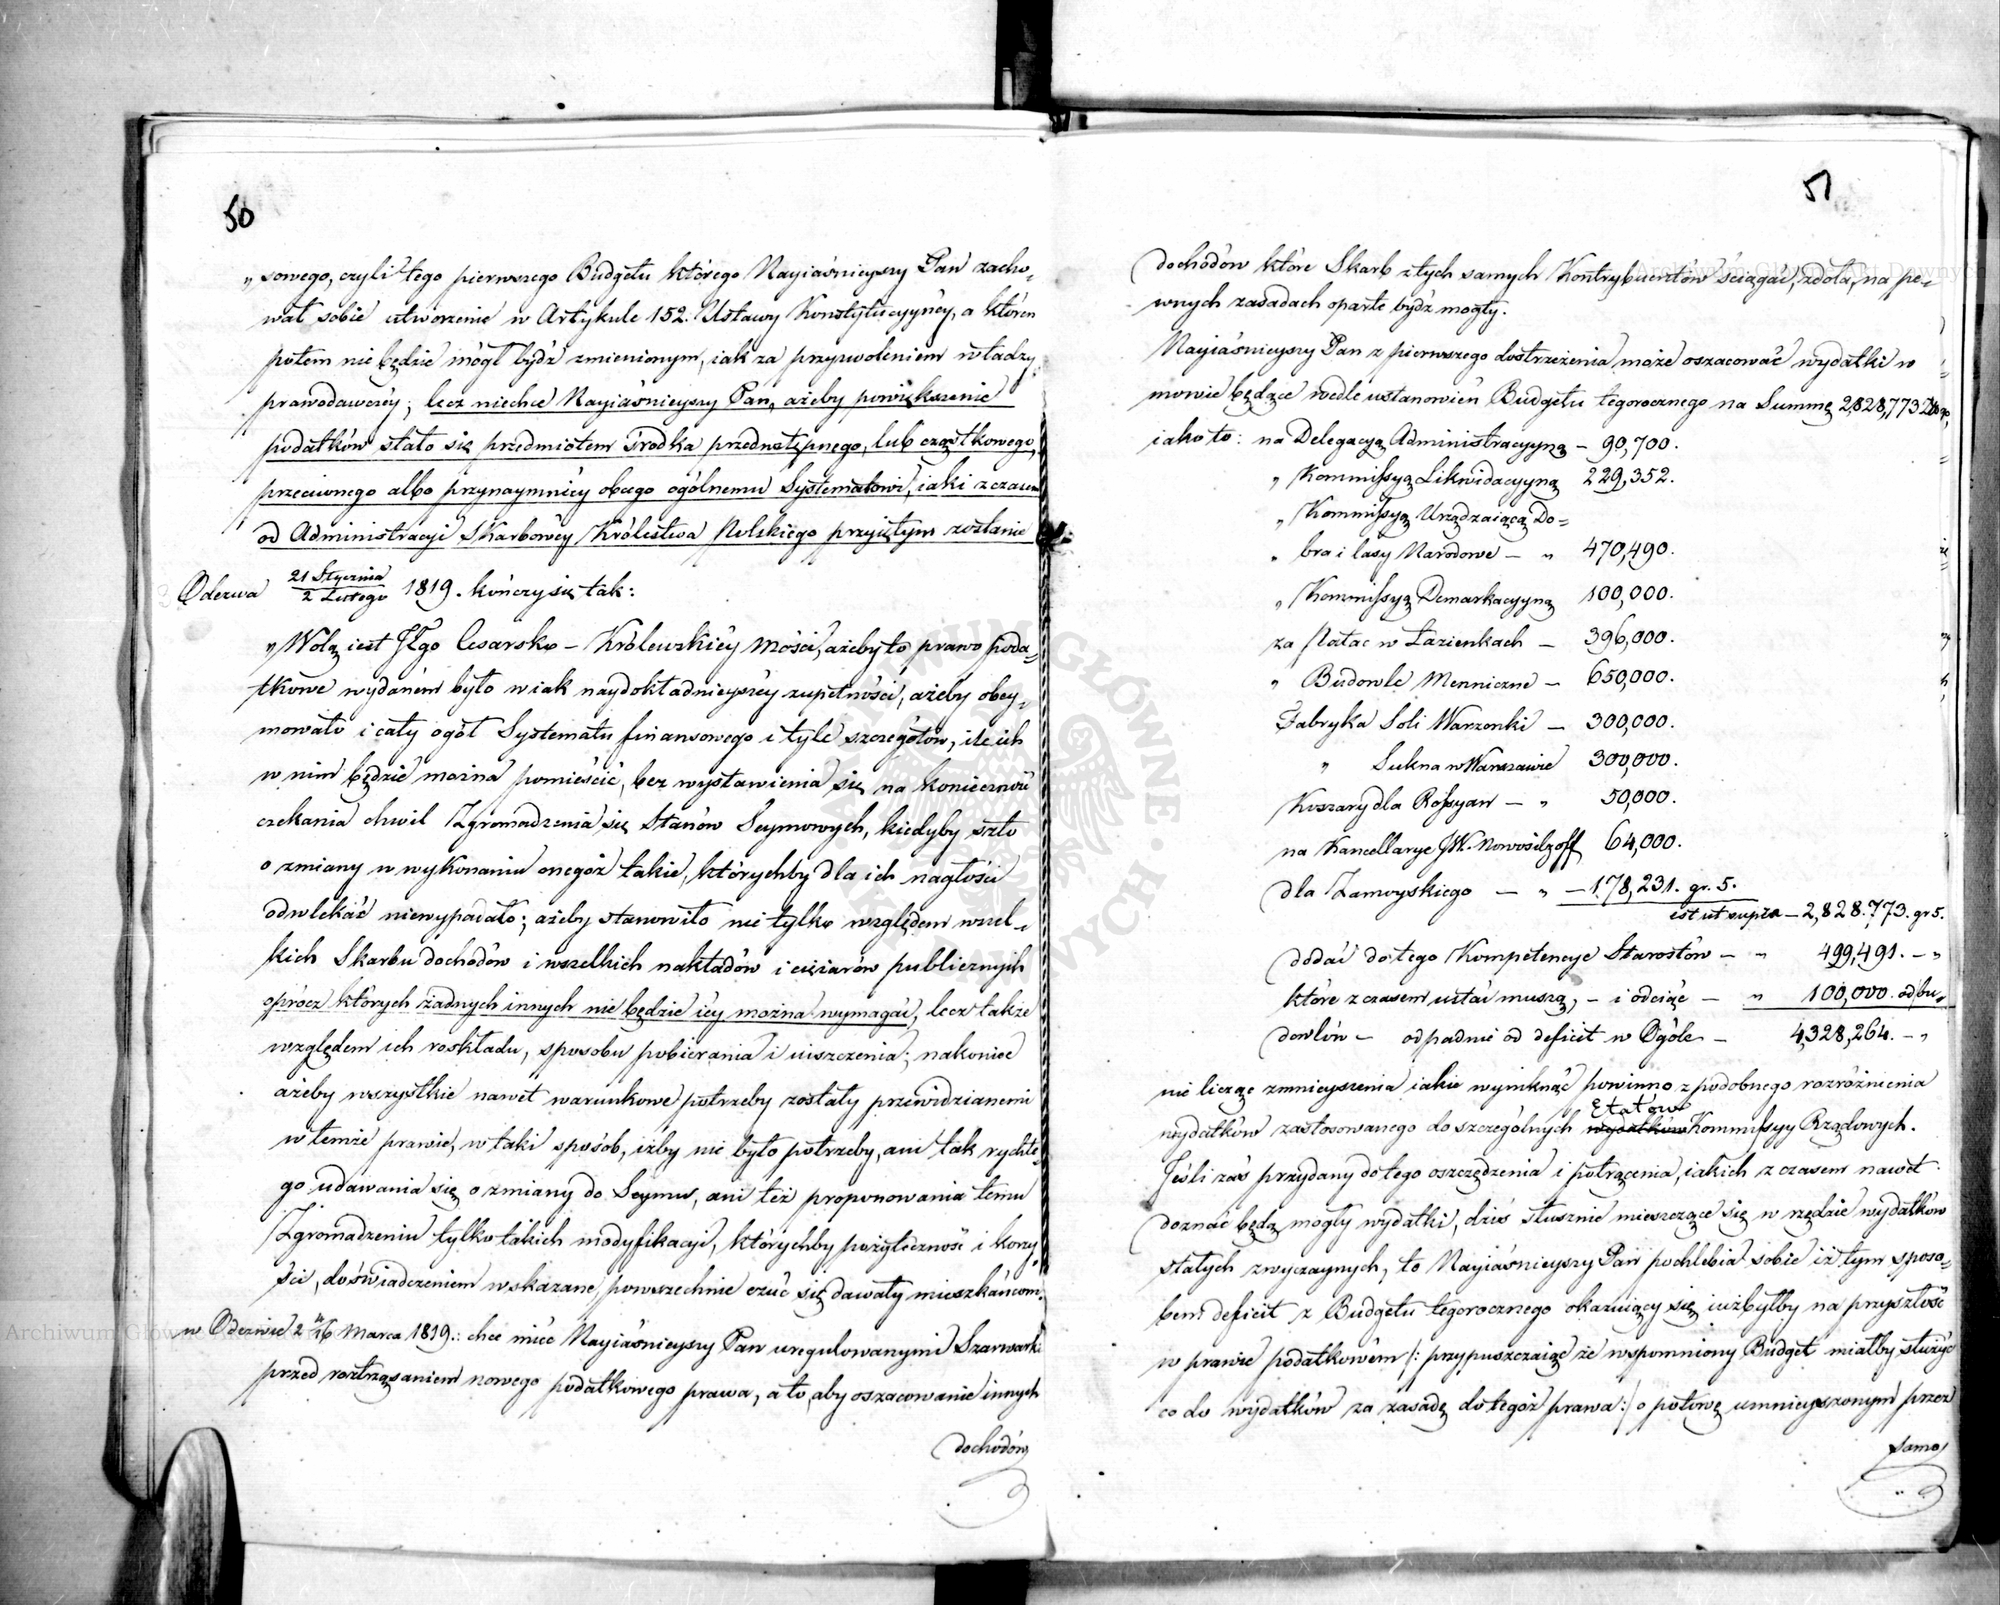 50
„ sowego, czyli tego pierwszego Budgetu którego Nayiaśnieyszy Pan zacho-
wał sobie utworzenie w Artykule 152. Ustawy Konstytucyyney, a któren
potem nie będzie mógł bydź zmienionym, iak za przyzwoleniem władzy
prawodawczéy; lecz niechce Nayiaśnieyszy Pan, ażeby powiększenie
podatków stało się przedmiotem środka przedwstępnego, lub cząstkowego,
przeciwnego albo przynaymniéy obcego ogólnemu Systematowi, iaki z czasem
od Administracyi Skarbowéy Królestwa Polskiego przyiętym zostanie
Odezwa 21 Stycznia / 2 Lutego 1819. kończy się tak:
„ Wolą iest JEgo Cesarsko-Królewskiéy Mości, ażeby to prawo poda-
tkowe wydaném było w iak naydokładnieyszéy zupełności, ażeby obey-
mowało i cały ogół Systematu finansowego i tyle szczegółów, ile ich
w nim będzie można pomieścić, bez wystawienia się na konieczność
czekania chwil Zgromadzenia się Stanów Seymowych, kiedyby szło
o zmiany w wykonaniu onegoż takie, którychby dla ich nagłości
odwlekać niewypadało; ażeby stanowiło nie tylko względem wszel-
kich Skarbu dochodów i wszelkich nakładów i ciężarów publicznych
oprócz których żadnych innych nie będzie iéy można wymagać, lecz także
względem ich roskładu, sposobu pobierania i uiszczenia; nakoniec
ażeby wszystkie nawet warunkowe potrzeby zostały przewidzianemi
w temże prawie, w taki sposób, iżby nie było potrzeby, ani tak rychłe-
go udawania się o zmiany do Seymu, ani też proponowania temu
Zgromadzeniu tylko takich modyfikacyi, którychby pożyteczność i korzy-
ści, doświadczeniem wskazane, powszechnie czuć się dawały mieszkańcom.
w Odezwie 2/16 Marca 1819.: chce mieć Nayiaśnieyszy Pan uregulowanymi Szarwarki
przed roztrząsaniem nowego podatkowego prawa, a to, aby oszacowanie innych
dochodów
51
dochodów które Skarb z tych samych Kontrybuentów ściągać zdoła, na pe-
wnych zasadach oparte bydź mogły.
Nayiaśnieyszy Pan z pierwszego dostrzeżenia może oszacować wydatki w
mowie będące wedle ustanowień Budgetu tegorocznego na Summę 2,828,773
iako to: na Delegacyą Administracyyną – 90,700.
„ Kommissyą Likwidacyyną 229,352.
„ Kommissyą Urządzaiącą Do=
„ bra i lasy Narodowe – „ 470,490.
„ Kommissyą Demarkacyyną 100,000.
za Pałac w Łazienkach – 396,000.
„ Budowle Menniczne – 650,000.
Fabryka Soli Warzonki – 300,000.
„ Sukna w Warszawie 300,000.
Koszary dla Rossyan – „ 50,000.
na Kancellarye JW. Nowosilzoff 64,000.
dla Zamoyskiego – „ – 178,231. gr. 5.
ist ut supra – 2,828,773. gr 5.
dodać do tego Kompetencye Starostów – „ 499,491. – „
które z czasem ustać muszą, – i odciąć – „ 100,000. od bu-
dowlów – odpadnie od deficit w Ogóle – 4,328,264. – „
nie licząc zmnieyszenia iakie wyniknąć powinno z podobnego rozróżnienia
Etatów
wydatków zastosowanego do szczególnych wydatków Kommissyy Rządowych.
Jeśli zaś przydany do tego oszczędzenia i potrącenia, iakich z czasem nawet
doznać będą mogły wydatki, dziś słusznie mieszczące się w rzędzie wydatków
stałych zwyczaynych, to Nayiaśnieyszy Pan pochlebia sobie iż tym sposo-
bem deficit z Budgetu tegorocznego okazuiący się iużbyłby na przyszłość
w prawie podatkowém /: przypuszczaiąc że wspomniony Budget miałby służyć
co do wydatków za zasadę do tegoż prawa :/ o połowę umnieyszonym przez
samo